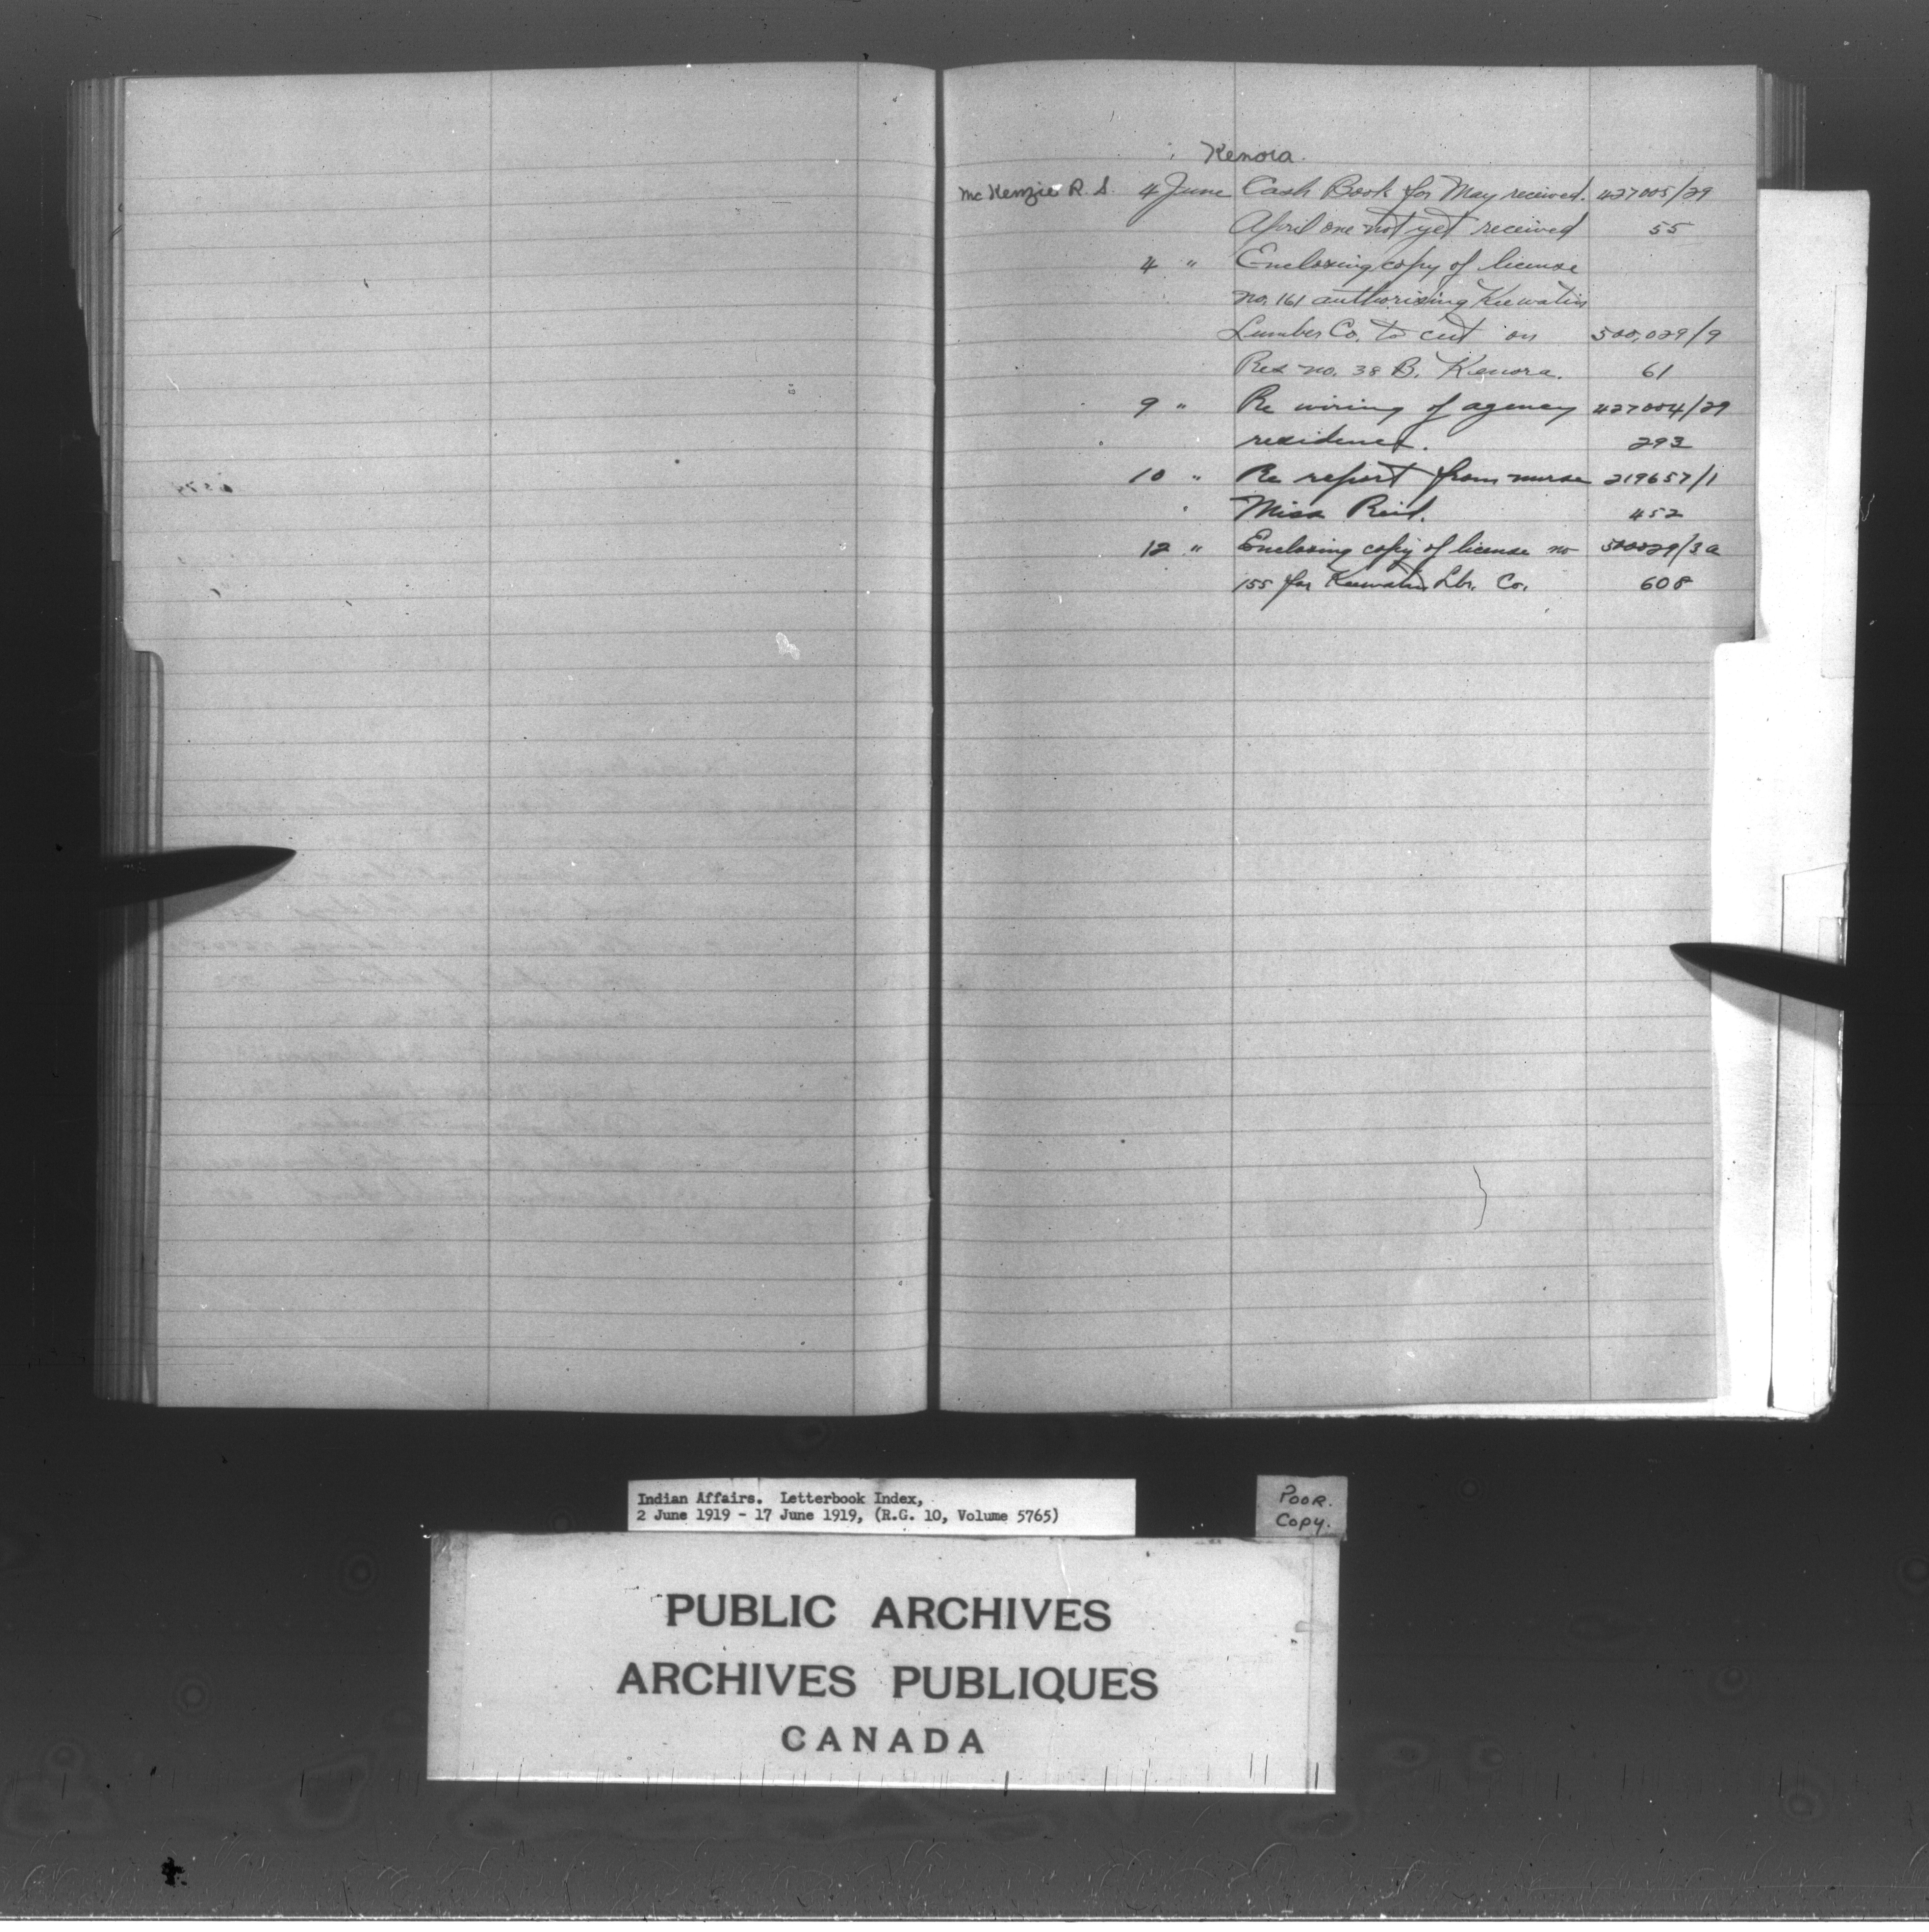 Kenora.
McKenzie R. S. 4 June Cash Book for May received. 427005/29
April one not yet received 55
4 " Enclosing copy of license
no. 161 authorising Keewatin
Lumber Co. to cut on 500,029/9
Res no. 38 B. Kenora. 61
9 " Re wiring of agency 427004/29
residence. 293
10 " Re report from nurse 219657/1
Miss Reid. 452
12 " Enclosing copy of license no 500029/3a
155 for Keewatin Lbr. Co. 608
Indian Affairs. Letterbook Index,
2 June 1919 - 17 June 1919, (R.G. 10, Volume 5765)
POOR.
Copy.
PUBLIC ARCHIVES
ARCHIVES PUBLIQUES
CANADA